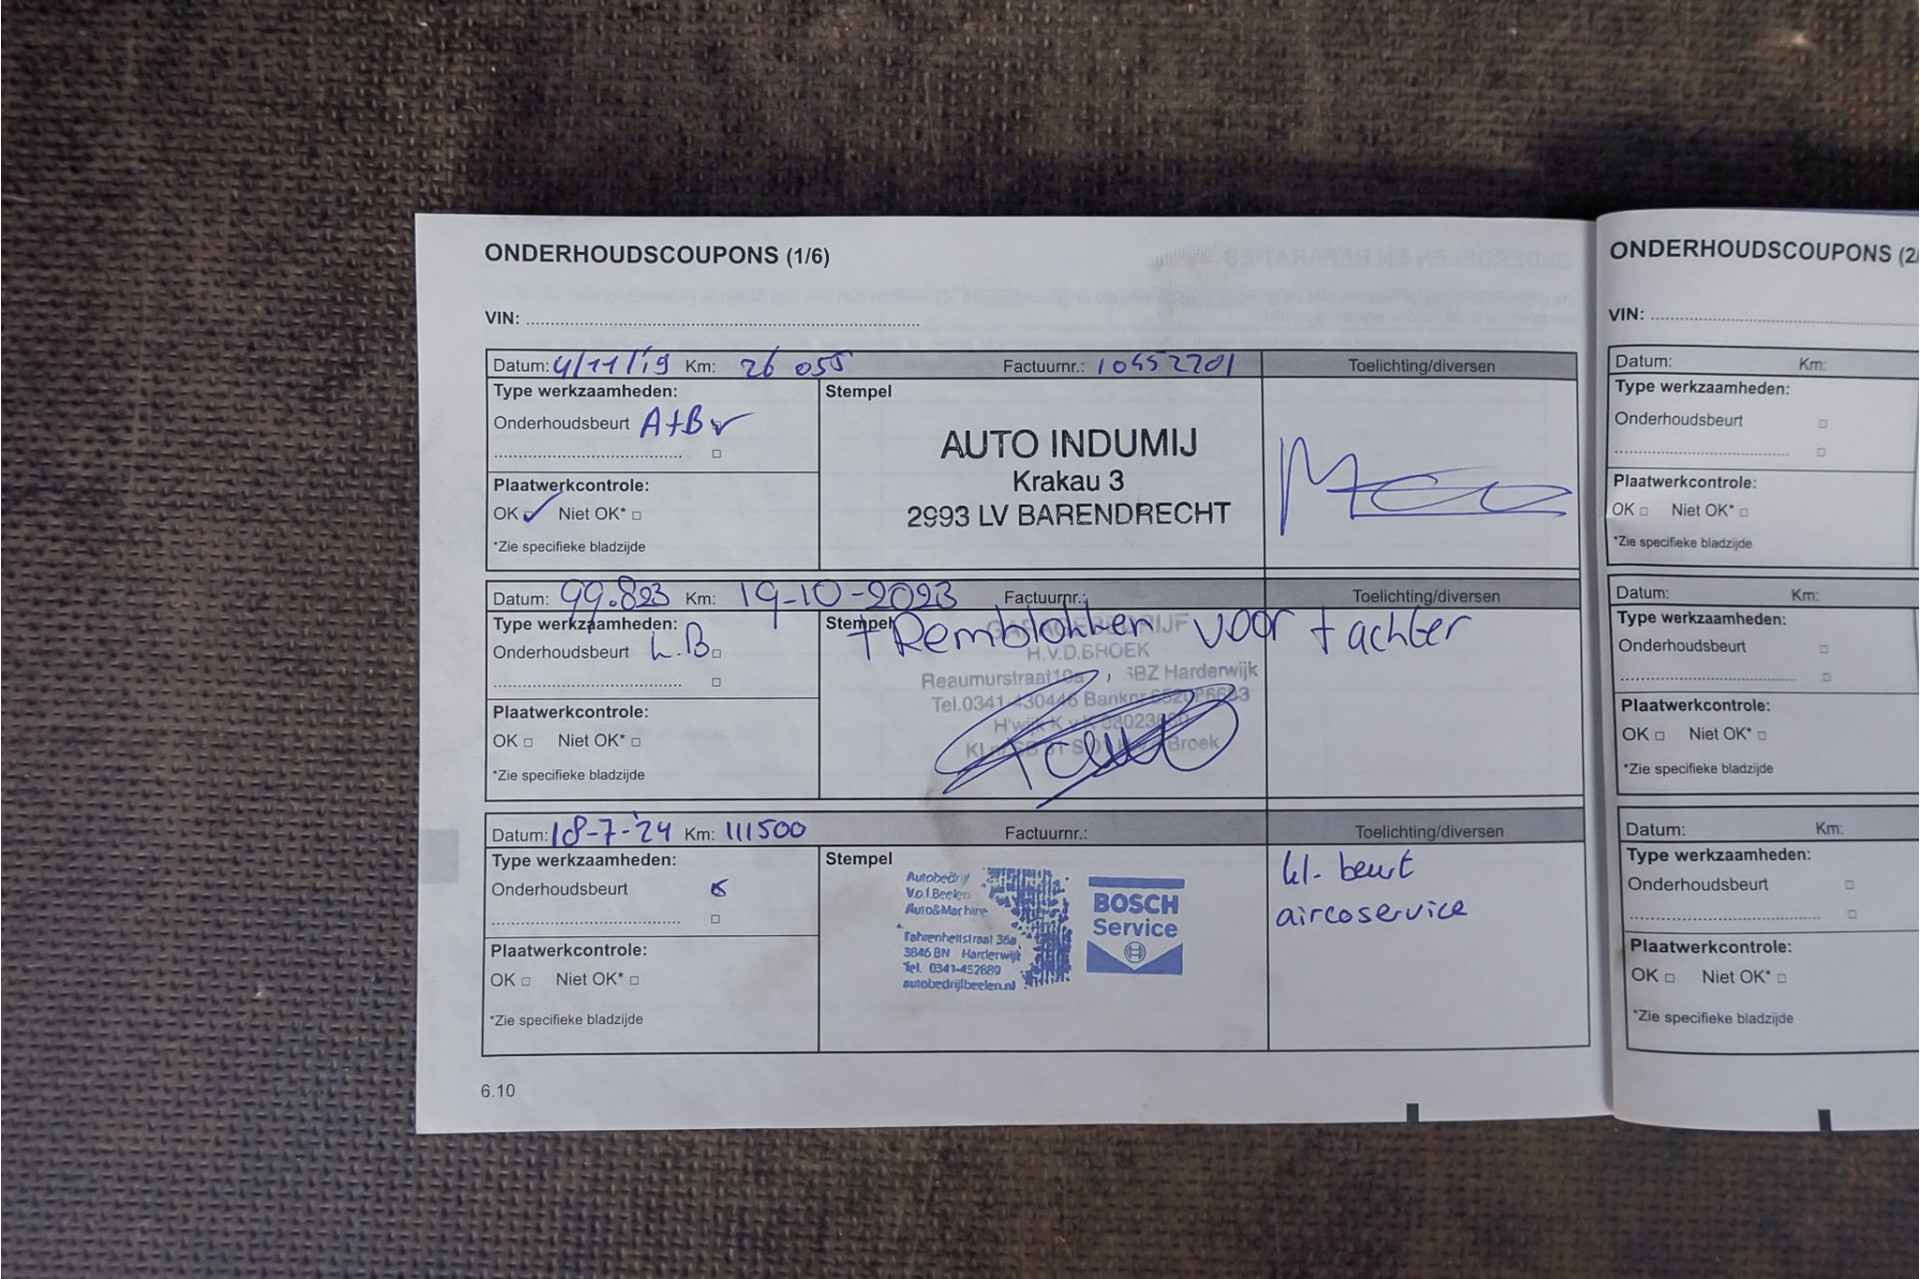 ONDERHOUDSCOUPONS (1/6)
VIN:
Datum: 4/11/'19 Km: 26 055 Factuurnr.: 10452701 Toelichting/diversen
Type werkzaamheden:
Onderhoudsbeurt A+B
Plaatwerkcontrole:
OK Niet OK*
*Zie specifieke bladzijde
Stempel
AUTO INDUMIJ
Krakau 3
2993 LV BARENDRECHT
Datum: 99.823 Km: 19-10-2023 Factuurnr.: Toelichting/diversen
Type werkzaamheden:
Onderhoudsbeurt
Plaatwerkcontrole:
OK Niet OK*
*Zie specifieke bladzijde
Stempel
+ Remblokken voor + achter
H.V.D.BROEK
Reaumurstraat Harderwijk
Tel.0341-430446 Banknr
H'wijk K.v.K.
Broek
Datum: 18-7-'24 Km: 111500 Factuurnr.: Toelichting/diversen
Type werkzaamheden:
Onderhoudsbeurt
Plaatwerkcontrole:
OK Niet OK*
*Zie specifieke bladzijde
Stempel
Autobedrijf
V.o.f.Beelen
Auto&Machine
Fahrenheitstraat 36a
3846 BN Harderwijk
Tel. 0341-452889
autobedrijfbeelen.nl
BOSCH
Service
kl. beurt
aircoservice
6.10
ONDERHOUDSCOUPONS (2/
VIN:
Datum: Km:
Type werkzaamheden:
Onderhoudsbeurt
Plaatwerkcontrole:
OK Niet OK*
*Zie specifieke bladzijde
Datum: Km:
Type werkzaamheden:
Onderhoudsbeurt
Plaatwerkcontrole:
OK Niet OK*
*Zie specifieke bladzijde
Datum: Km:
Type werkzaamheden:
Onderhoudsbeurt
Plaatwerkcontrole:
OK Niet OK*
*Zie specifieke bladzijde